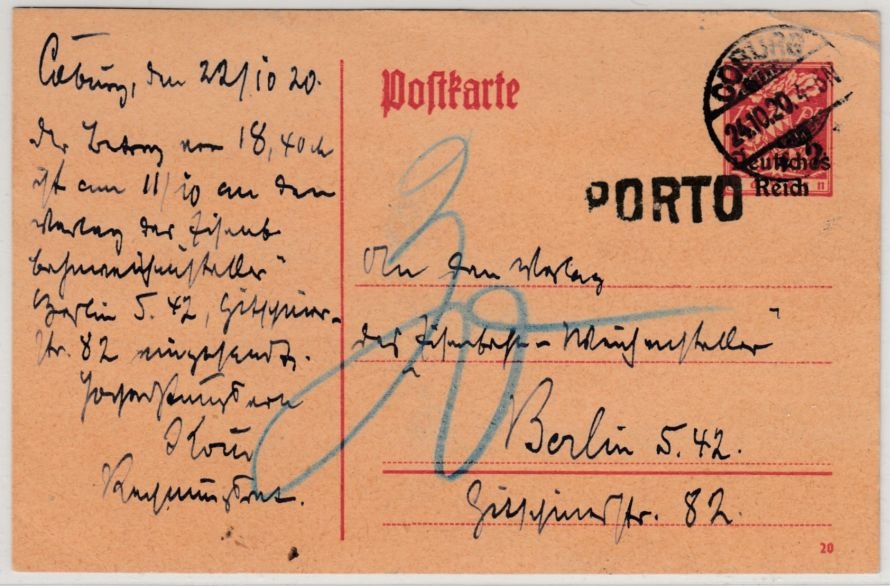 Coburg, den 22/10 20.
Der Betrag von 18,40 M
ist am 11/10 an den
Verlag des "Eisen-
bahnweichensteller"
Berlin S. 42, Gitschiner-
Str. 82 eingesandt.
Hochachtungsvoll
Rechnungsrat.
Postkarte
COBURG
24.10.20. 4-5N
Deutsches
Reich
PORTO
30
An den Verlag
des "Eisenbahn-Weichensteller"
Berlin S. 42.
Gitschinerstr. 82.
20